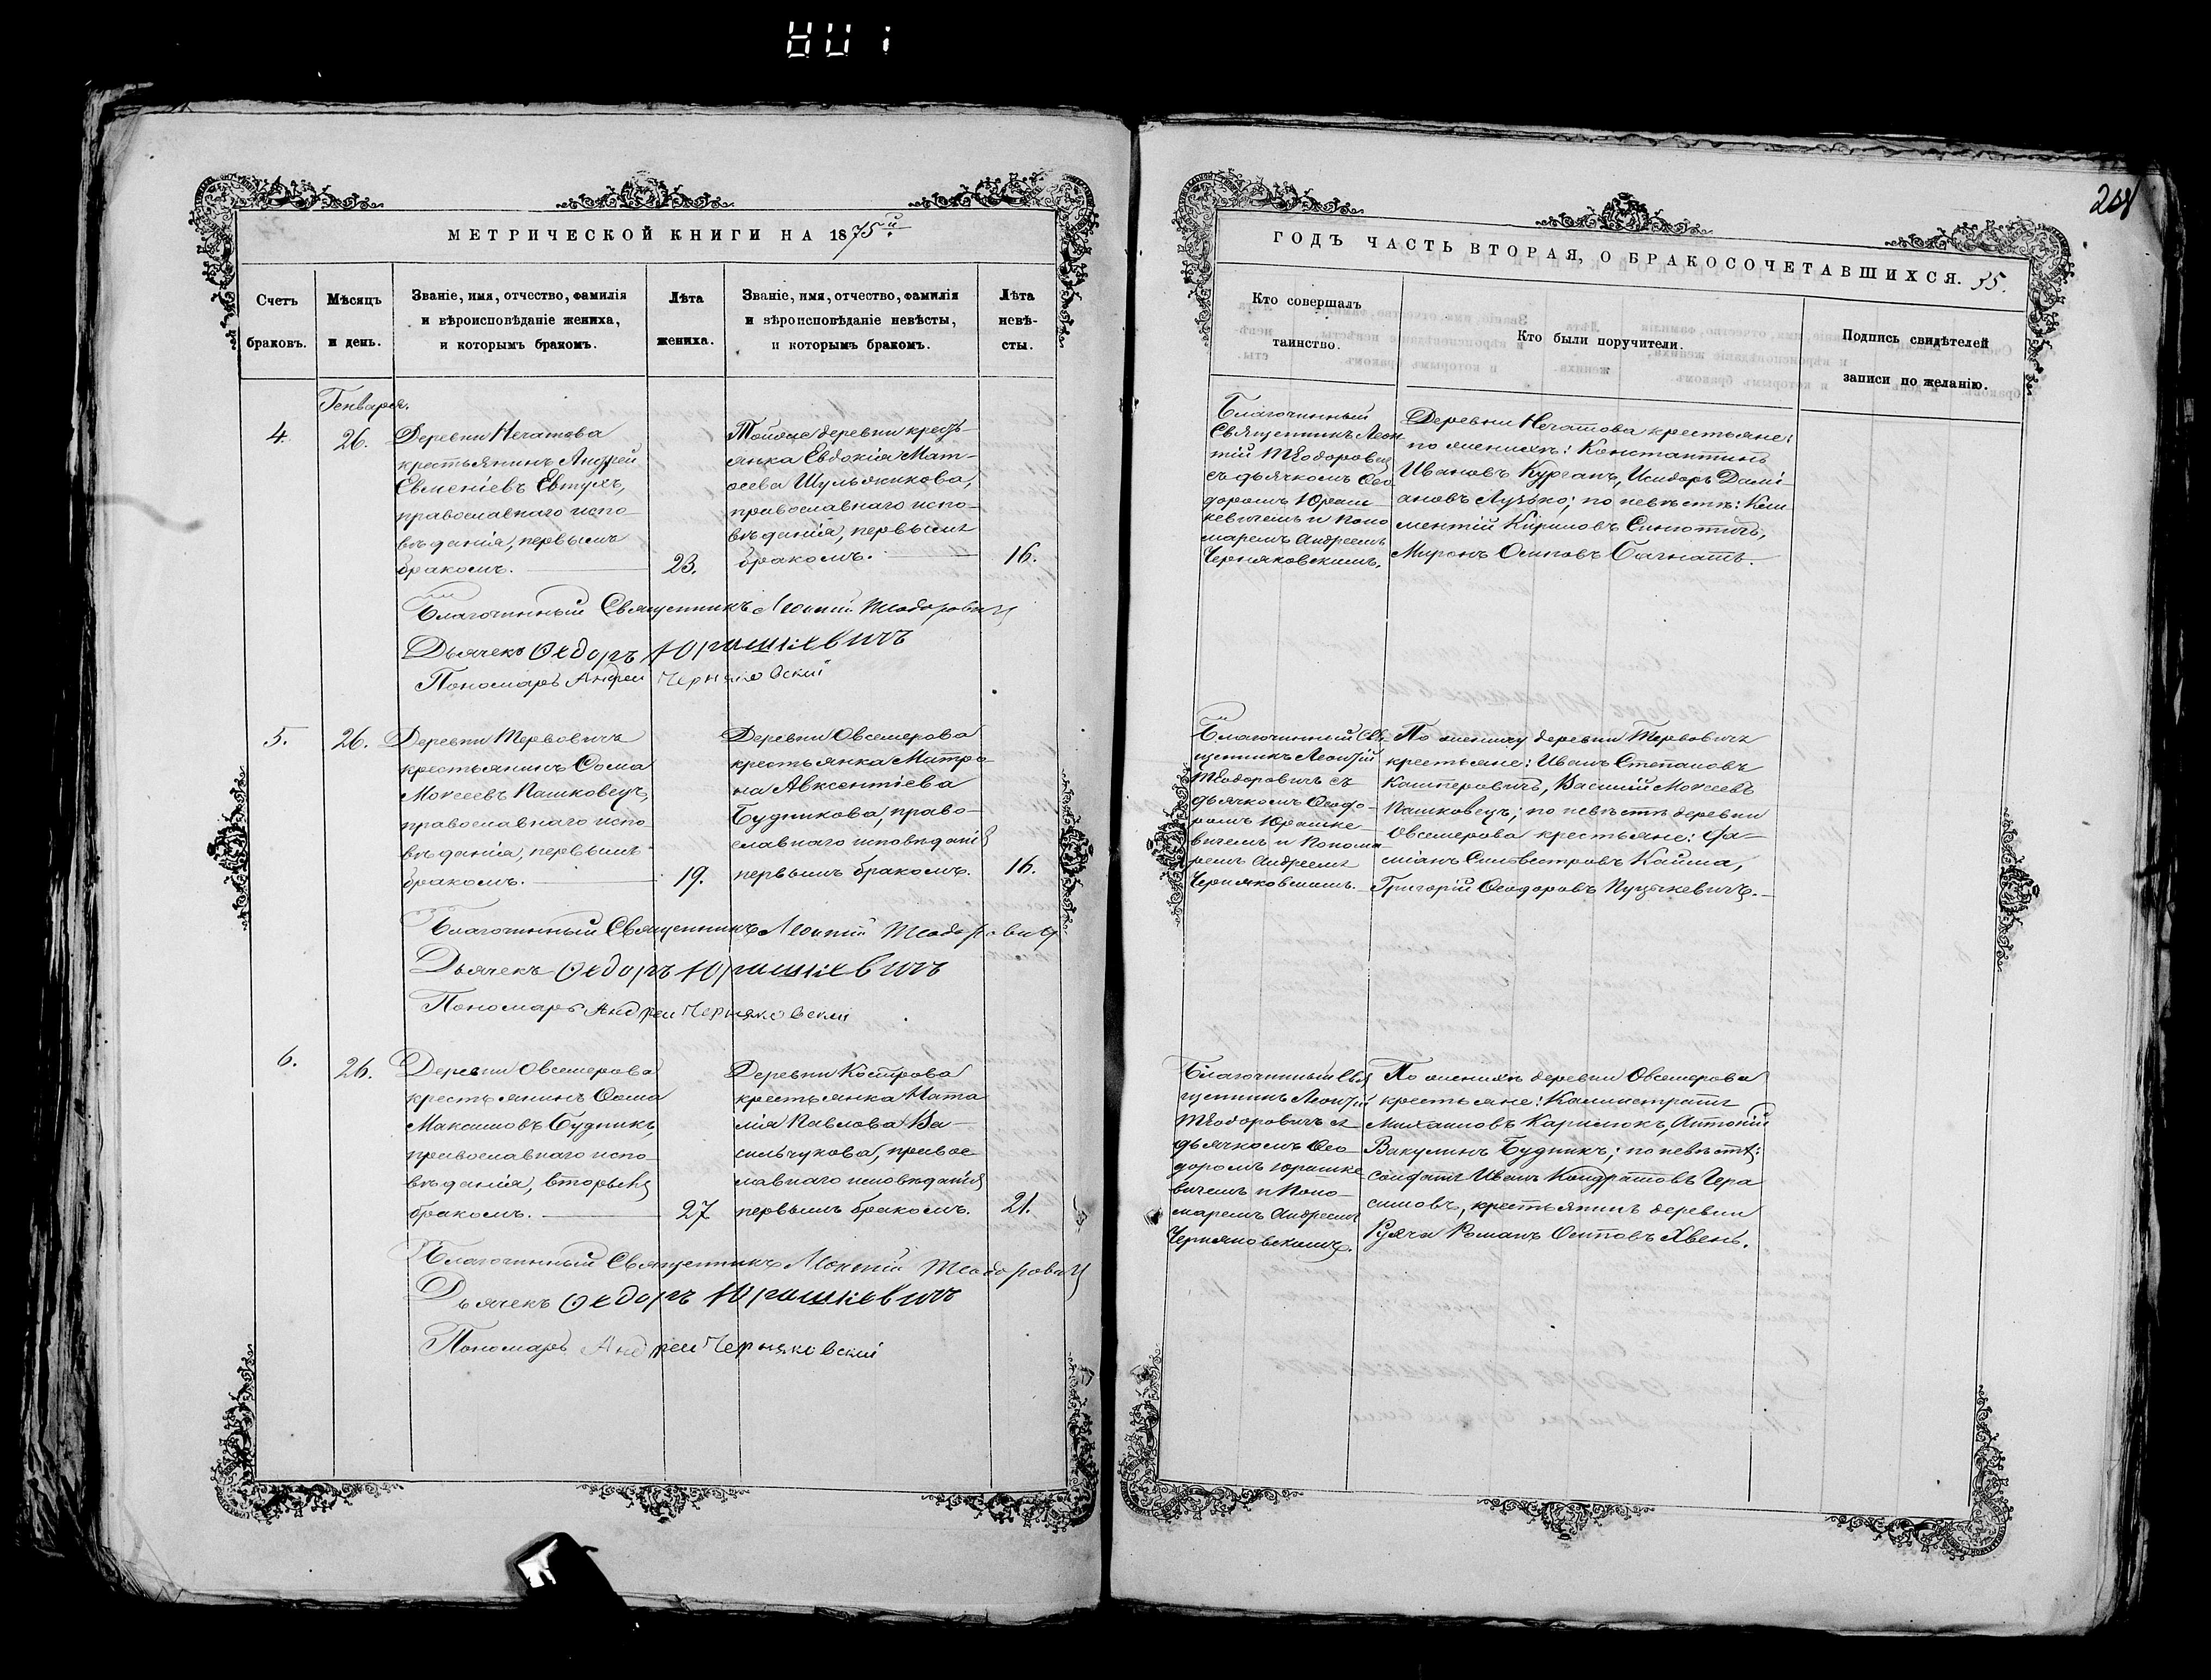 МЕТРИЧЕСКОЙ КНИГИ НА 1875й
Счетъ браковъ.
Мѣсяцъ и день.
Званіе, имя, отчество, фамилія и вѣроисповѣданіе жениха, и которымъ бракомъ.
Лѣта жениха.
Званіе, имя, отчество, фамилія и вѣроисповѣданіе невѣсты, и которымъ бракомъ.
Лѣта невѣ-
сты.
Генваря.
4.
26.
Деревни Нечатова
крестьянинъ Андрей
Евменіевъ Евтухъ,
православнаго испо-
вѣданія, первымъ
бракомъ.
23.
Тойже деревни кресть-
янка Евдокія Мат-
ѳеева Шульжикова,
православнаго испо-
вѣданія, первымъ
бракомъ.
16.
Благочинный Священникъ Леонтій Теодоровичъ
Дьячекъ Ѳедоръ Юрашкевичъ
Пономарь Андрей Черняковскій
5.
26.
Деревни Тервовичъ
крестьянинъ Ѳома
Моисеевъ Пашковецъ,
православнаго испо-
вѣданія, первымъ
бракомъ.
19.
Деревни Овсемерова
крестьянка Матро-
на Авксентіева
Будникова, право-
славнаго исповѣданія
первымъ бракомъ.
16.
Благочинный Священникъ Леонтій Теодоровичъ
Дьячекъ Ѳедоръ Юрашкевичъ
Пономарь Андрей Черняковскій
6.
26.
Деревни Овсемерова
крестьянинъ Ѳома
Максимовъ Будникъ,
православнаго испо-
вѣданія, вторымъ
бракомъ.
27
Деревни Кострова
крестьянка Ната
лія Павлова Ва-
сильчукова, правос
лавнаго исповѣданія
первымъ бракомъ.
21.
Благочинный Священникъ Леонтій Теодоровичъ
Дьячекъ Ѳедоръ Юрашкевичъ
Пономарь Андрей Черняковскій
ГОДЪ ЧАСТЬ ВТОРАЯ, О БРАКОСОЧЕТАВШИХСЯ. 35.
Кто совершалъ
таинство.
Кто были поручители.
Подпись свидѣтелей
записи по желанію.
Благочинный
Священникъ Леон
тій Теодоровичъ
съ дьячкомъ Ѳео
доромъ Юраш
кевичемъ и Поно
маремъ Андреемъ
Черняковскимъ.
Деревни Нечатова крестьяне:
по женихѣ: Константинъ
Ивановъ Курганъ, Исидоръ Дамі-
ановъ Лузько; по невѣстѣ: Кли
ментій Кириловъ Синютичъ,
Миронъ Осиповъ Багнатъ.
Благочинный Свя
щенникъ Леонтій
Теодоровичъ съ
дьячкомъ Ѳеодо-
ромъ Юрашке-
вичемъ и Понома-
ремъ Андреемъ
Черняковскимъ.
По жениху деревни Тервовичъ
крестьяне: Иванъ Степановъ
Касперовичъ, Василій Моисеевъ
Пашковецъ; по невѣстѣ деревни
Овсемерова крестьяне:
Силвестровъ Кайма,
Григорій Ѳеодоровъ Пуцыкевичъ.
Благочинный Свя
щенникъ Леонтій
Теодоровичъ съ
дьячкомъ Ѳео-
доромъ Юрашке
вичемъ и Поно-
маремъ Андреемъ
Черняковскимъ.
По женихѣ деревни Овсемерова
крестьяне: Калистратъ
Михаиловъ Карилюкъ, Антоній
Вакулинъ Будникъ; по невѣстѣ:
солдатъ Иванъ Кондратовъ Гера
симовъ, крестьянинъ деревни
Романъ Осиповъ Хвень.